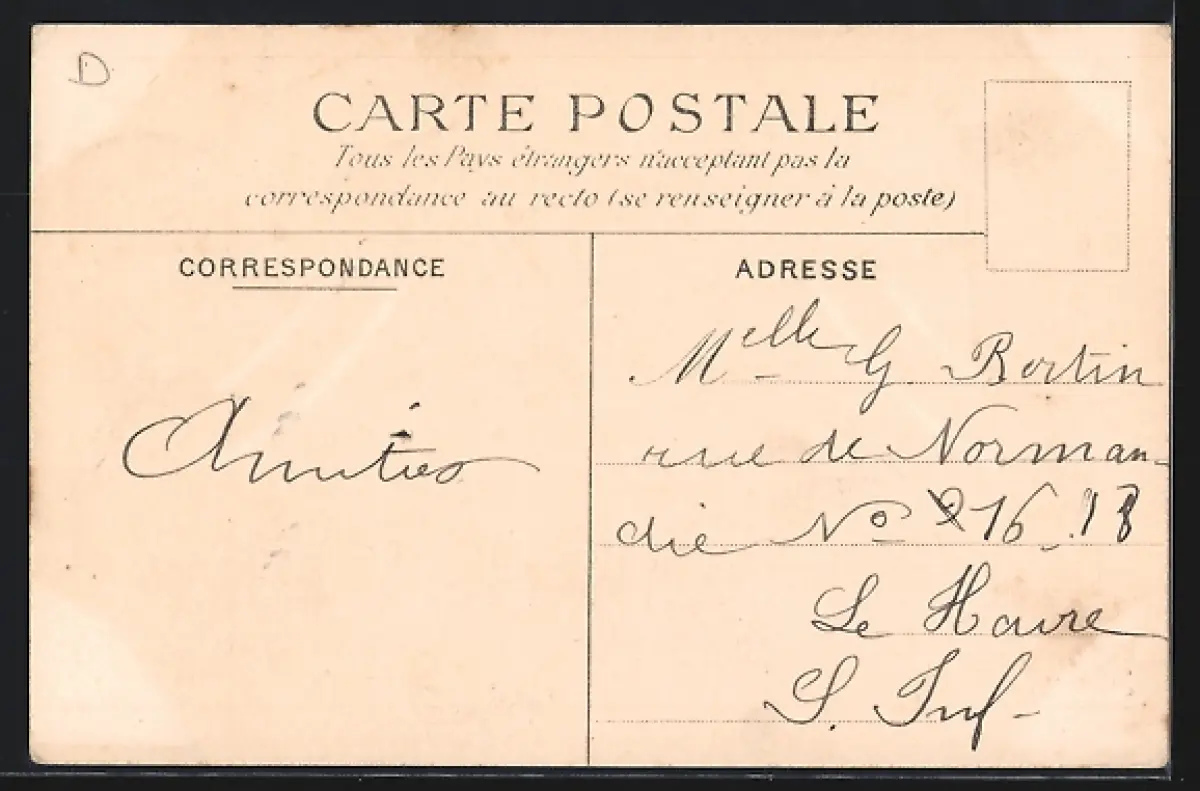 D
CARTE POSTALE
Tous les Pays étrangers n'acceptant pas la
correspondance au recto (se renseigner à la poste)
CORRESPONDANCE
ADRESSE
Amitiés
Melle G Bertin
rue de Norman-
die No 16
Le Havre
S. Inf-